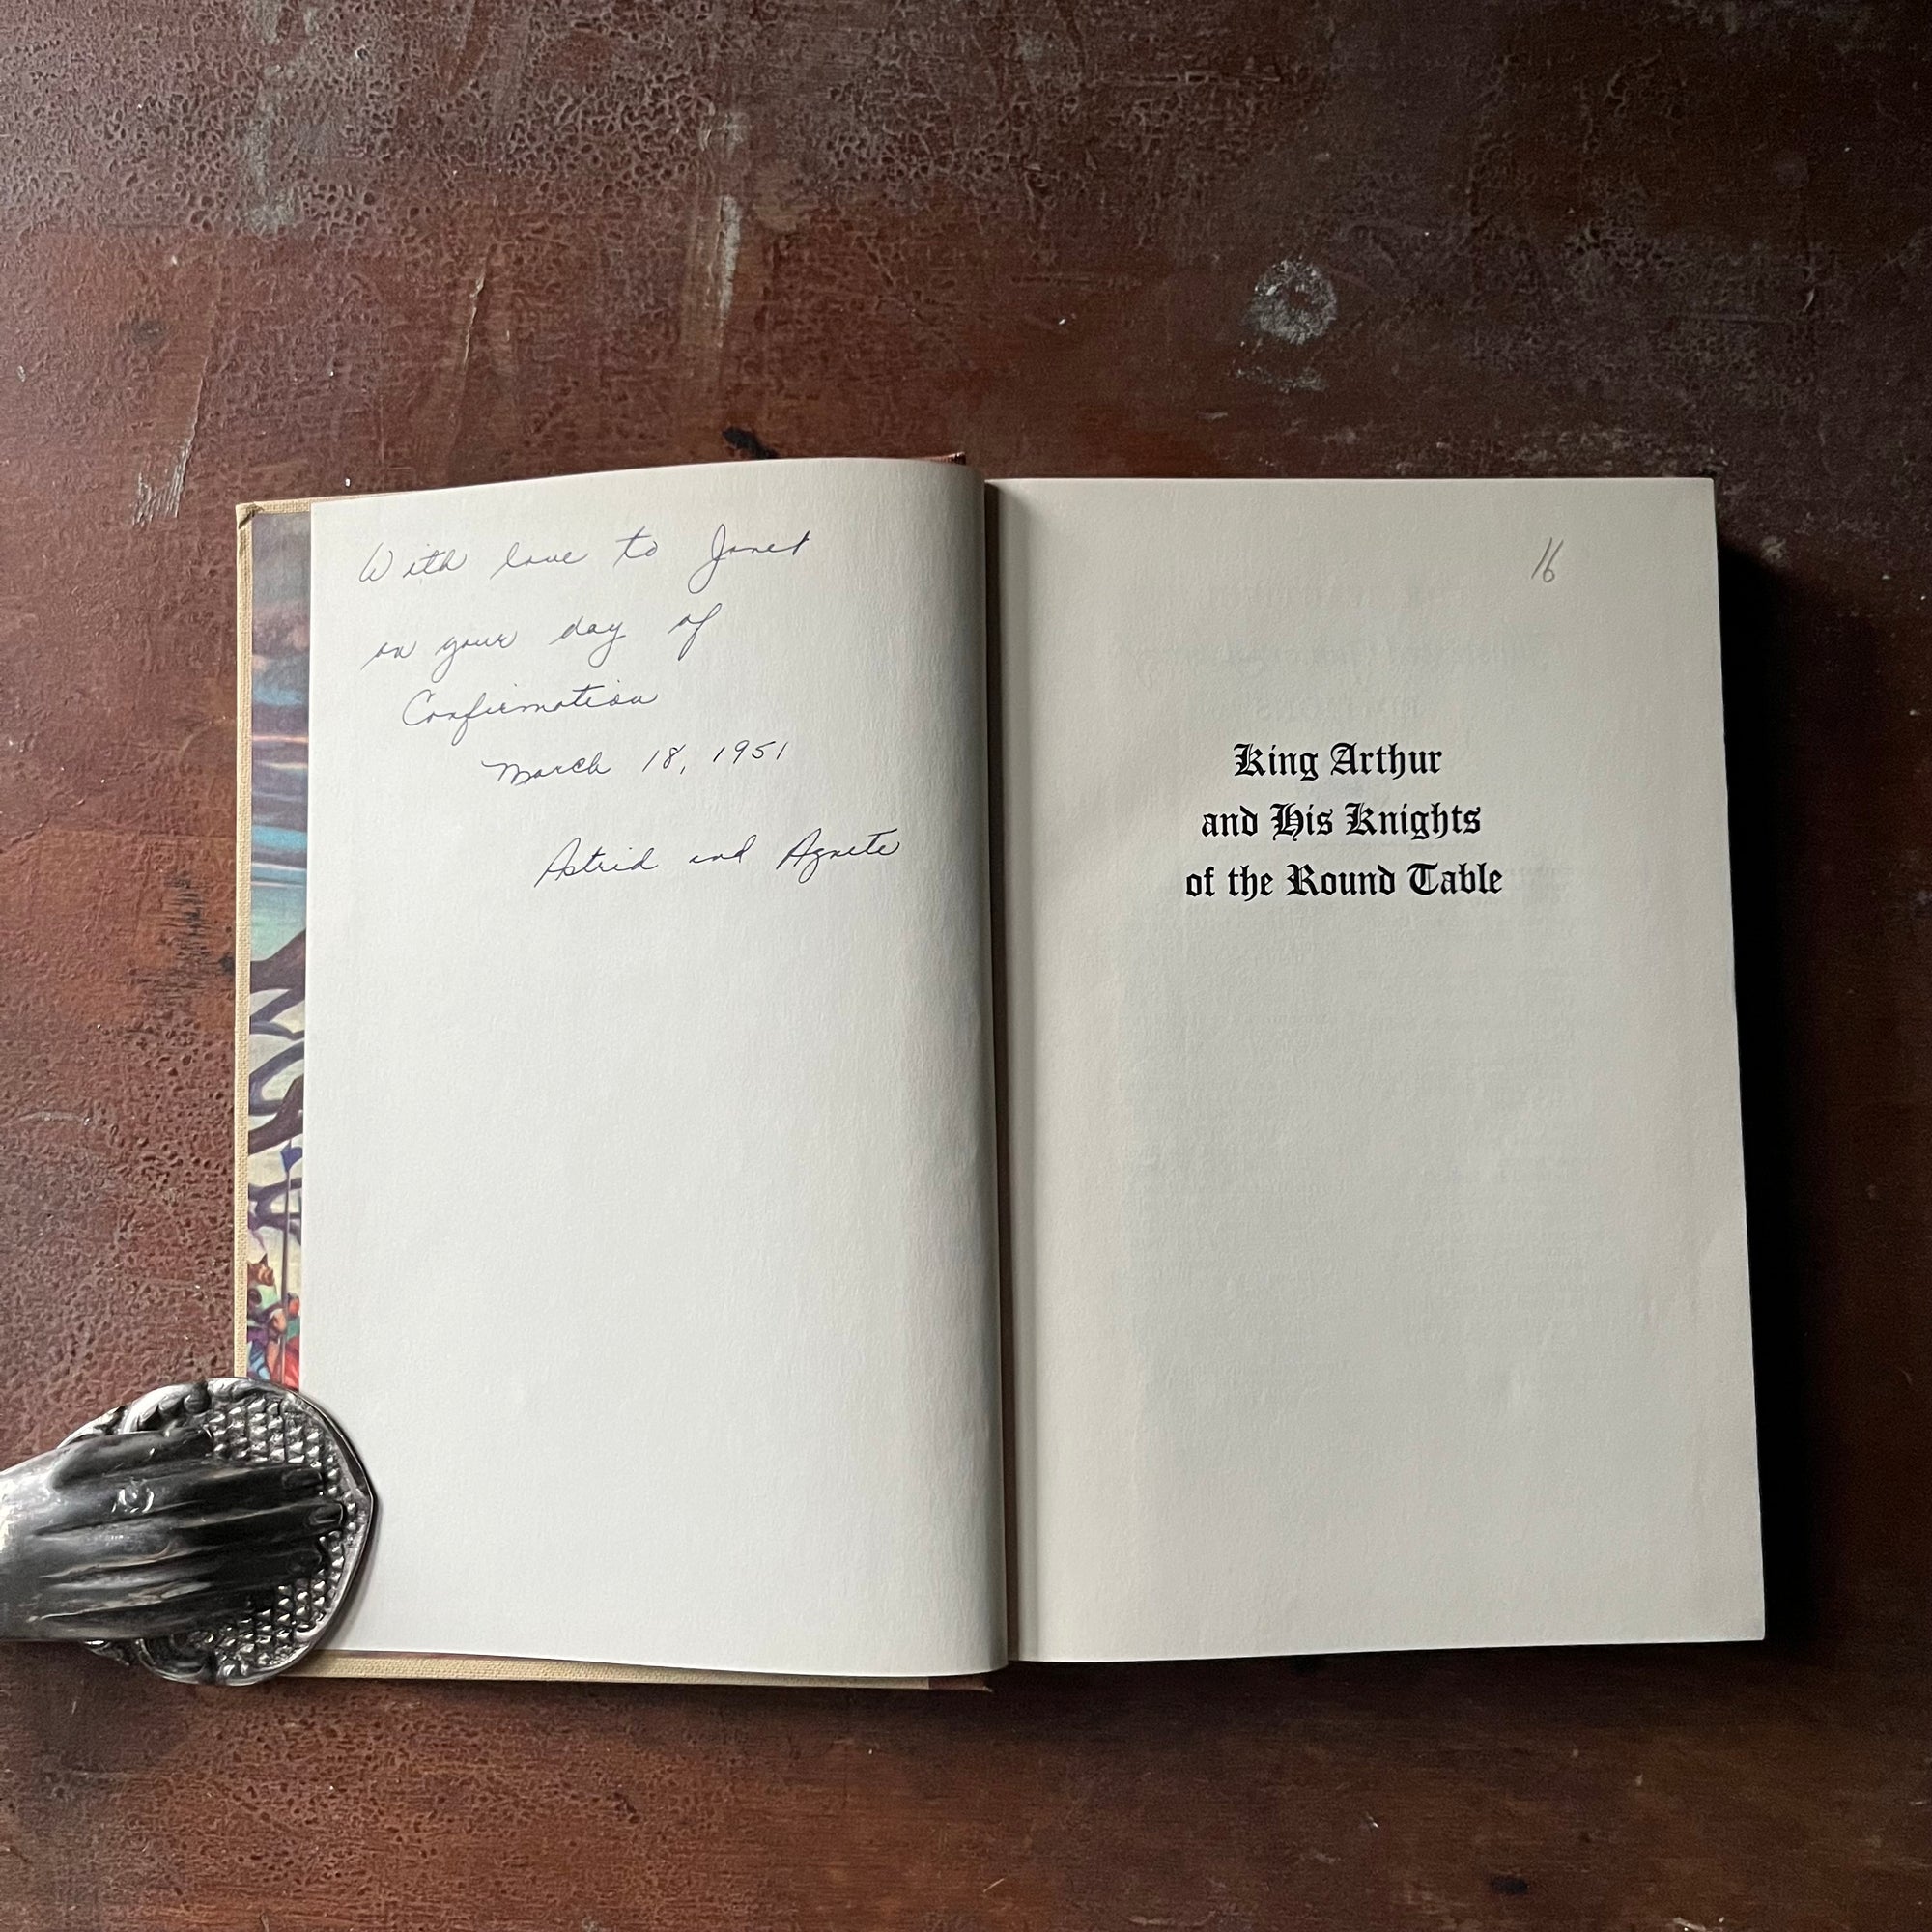 With love to Janet
on your day of
Confirmation
March 18, 1951
Astrid and Agnete
16
King Arthur
and His Knights
of the Round Table